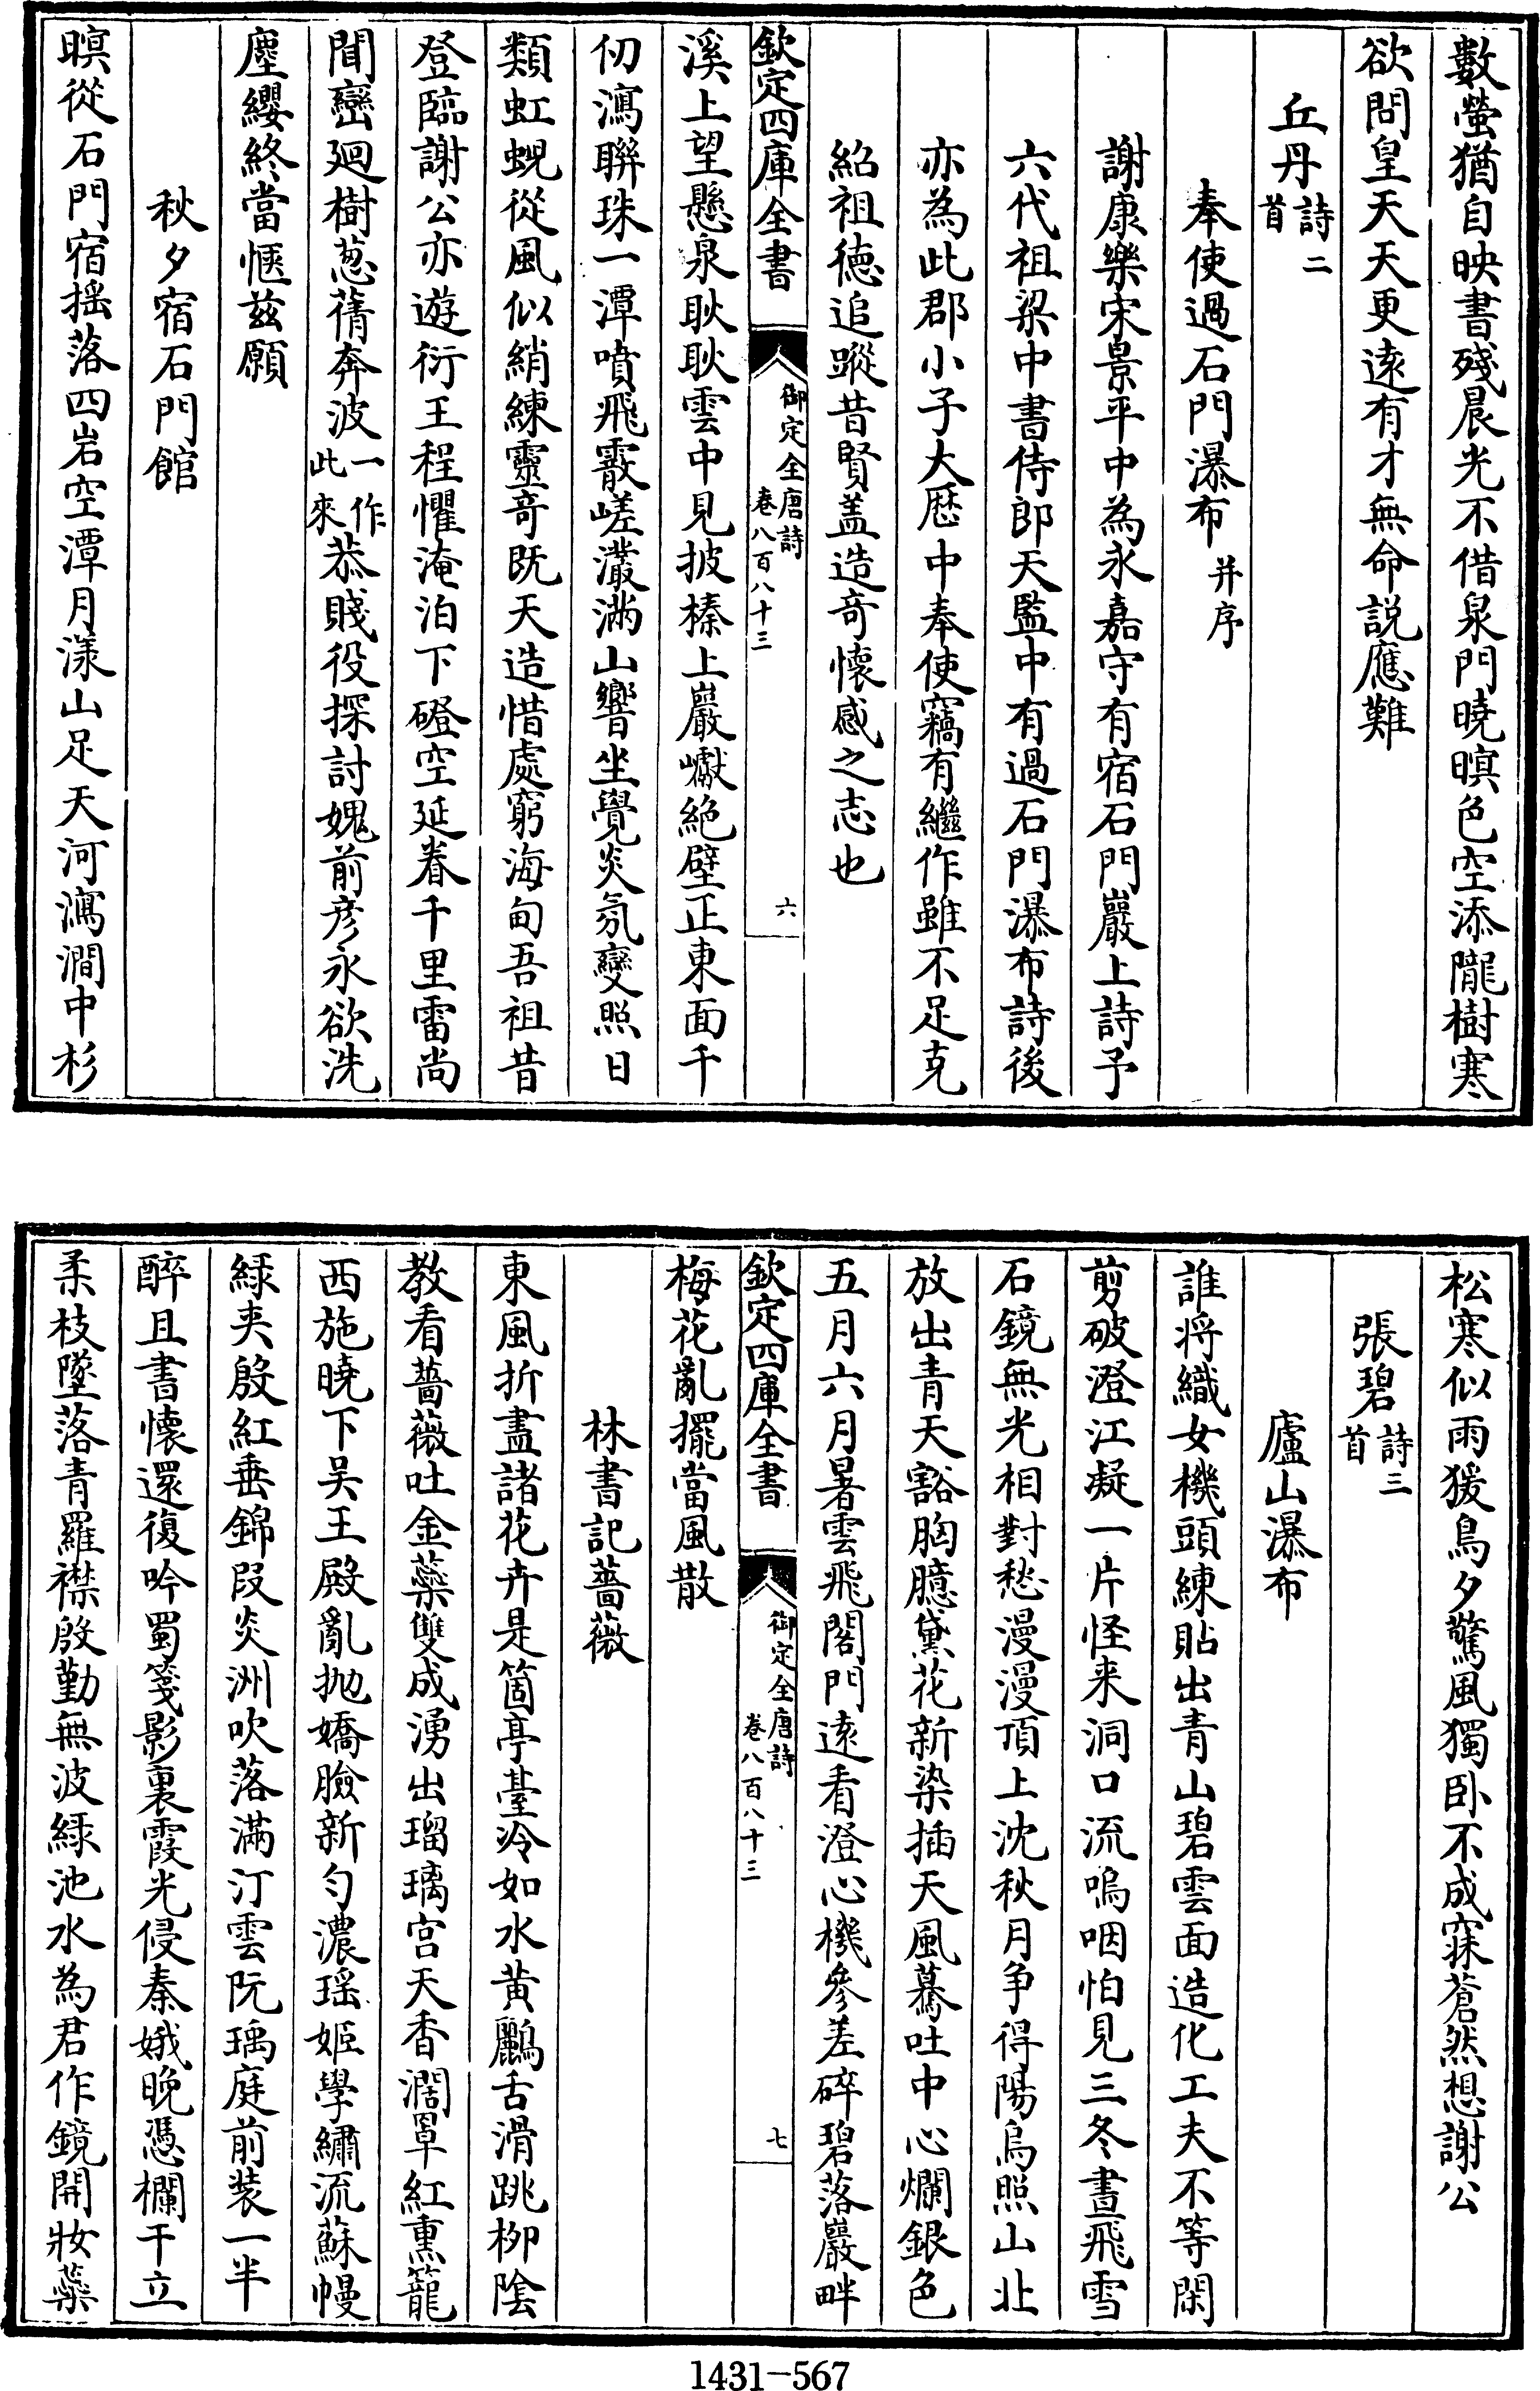 數螢猶自映書殘晨光不借泉門曉暝色空添隴樹寒
欲問皇天天更遠有才無命説應難
丘丹詩二首
奉使過石門瀑布并序
謝康樂宋景平中為永嘉守有宿石門巖上詩予
六代祖梁中書侍郎天監中有過石門瀑布詩後
亦為此郡小子大厯中奉使竊有繼作雖不足克
紹祖德追蹤昔賢盖造奇懷感之志也
欽定四庫全書 御定全唐詩 卷八百八十三 六
溪上望懸泉耿耿雲中見披榛上巖巘絶壁正東面千
仞瀉聯珠一潭噴飛霰嵯灇滿山響坐覺炎氛變照日
類虹蜺從風似綃練靈奇既天造惜處窮海甸吾祖昔
登臨謝公亦遊衍王程懼淹泊下磴空延眷千里雷尚
聞巒廻樹葱蒨奔波一作此來恭賤役探討媿前彥永欲洗
塵纓終當愜兹願
秋夕宿石門館
暝從石門宿摇落四岩空潭月漾山足天河瀉澗中杉
松寒似雨猨鳥夕驚風獨卧不成寐蒼然想謝公
張碧詩三首
廬山瀑布
誰將織女機頭練貼出青山碧雲面造化工夫不等閑
剪破澄江凝一片怪来洞口流嗚咽怕見三冬晝飛雪
石鏡無光相對愁漫漫頂上沈秋月争得陽烏照山北
放出青天豁胸臆黛花新染插天風驀吐中心爛銀色
五月六月暑雲飛閣門遠看澄心機參差碎碧落巖畔
欽定四庫全書 御定全唐詩 卷八百八十三 七
梅花亂擺當風散
林書記薔薇
東風折盡諸花卉是箇亭臺冷如水黄鸝舌滑跳柳陰
教看薔薇吐金蘂雙成湧出瑠璃宫天香濶罩紅熏籠
西施曉下吴王殿亂抛嬌臉新勻濃瑶姬學繡流蘇幔
緑夹殷紅垂錦段炎洲吹落滿汀雲阮瑀庭前装一半
醉且書懷還復吟蜀箋影裏霞光侵秦娥晚凴欄干立
柔枝墜落青羅襟殷勤無波緑池水為君作鏡開妝蘂
1431-567